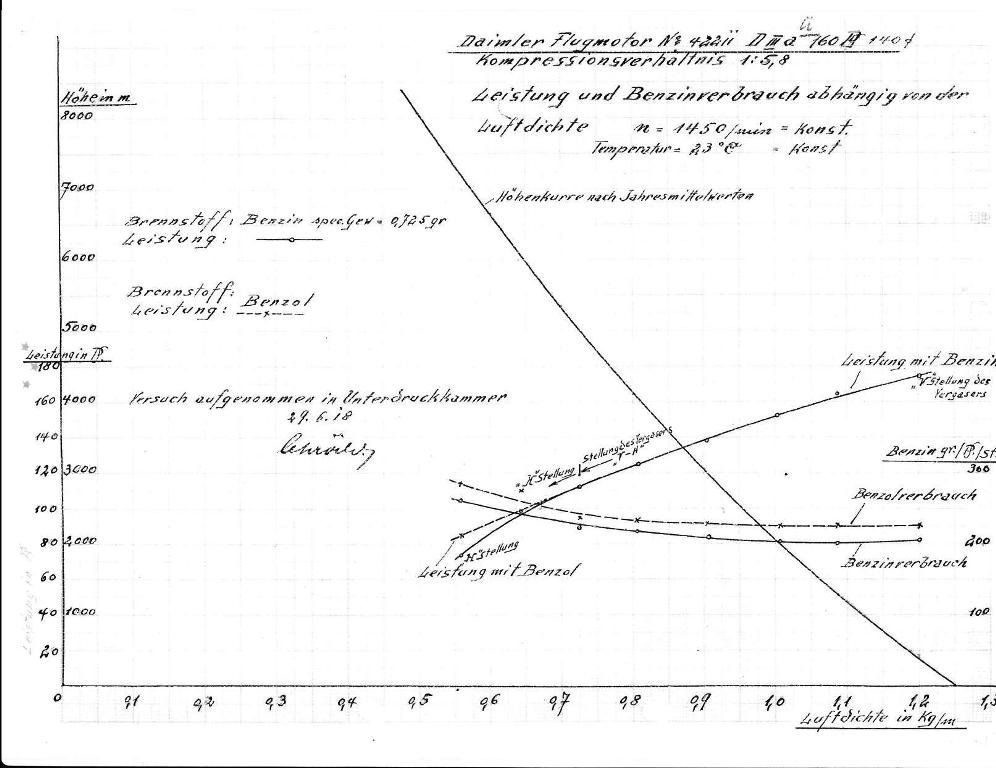 Daimler Flugmotor № 42211 D III aü 160 PS
Kompressionsverhältnis 1:5,8
Leistung und Benzinverbrauch abhängig von der
Luftdichte n = 1450/min = Konst.
Temperatur = 23°C = Konst
Höhe in m
8000
7000
6000
5000
4000
3000
2000
1000
Höhenkurve nach Jahresmittelwerten
Brennstoff: Benzin spec.Gew = 0,725 gr
Leistung:
Brennstoff: Benzol
Leistung:
Leistung in PS.
180
160
140
120
100
80
60
40
20
Versuch aufgenommen in Unterdruckkammer
29.6.18
Leistung mit Benzin
"V" Stellung des
Vergasers
Stellung des Vergasers
"V-H"
"H" Stellung
Benzin gr./PS/St.
300
200
100
Benzolverbrauch
Benzinverbrauch
"H" Stellung
Leistung mit Benzol
0 0,1 0,2 0,3 0,4 0,5 0,6 0,7 0,8 0,9 1,0 1,1 1,2 1,3
Luftdichte in Kg/m